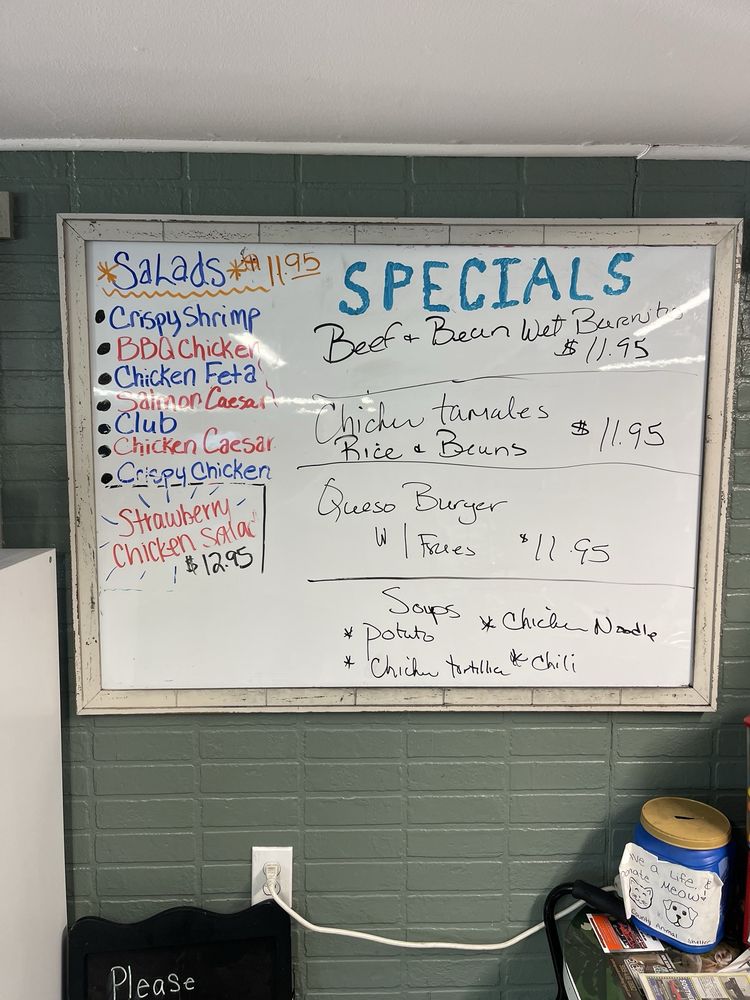 *Salads* 11.95
Crispy Shrimp
BBQ Chicken
Chicken Feta
Salmon Caesar
Club
Chicken Caesar
Crispy Chicken
Strawberry
Chicken Salad
$12.95
SPECIALS
Beef + Bean Wet Burrito
$11.95
Chicken tamales
Rice & Beans $11.95
Queso Burger
W/Fries $11.95
Soups
* Potato * Chicken Noodle
* Chicken tortilla * Chili
a Life,
MEOW!
County Animal Shelter
Please